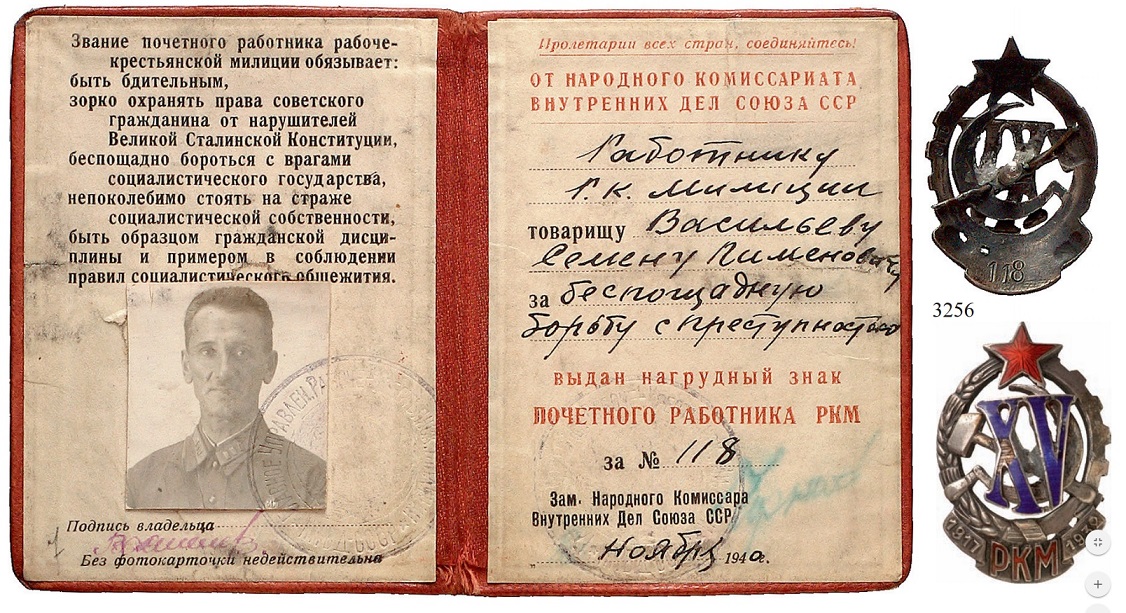 Звание почетного работника рабоче-
крестьянской милиции обязывает:
быть бдительным,
зорко охранять права советского
гражданина от нарушителей
Великой Сталинской Конституции,
беспощадно бороться с врагами
социалистического государства,
непоколебимо стоять на страже
социалистической собственности,
быть образцом гражданской дисци-
плины и примером в соблюдении
правил социалистического общежития.
Подпись владельца
Без фотокарточки недействительна
Пролетарии всех стран, соединяйтесь!
ОТ НАРОДНОГО КОМИССАРИАТА
ВНУТРЕННИХ ДЕЛ СОЮЗА ССР
Работнику
Р.К. Милиции
товарищу Васильеву
Семену Пименовичу
за беспощадную
борьбу с преступностью
выдан нагрудный знак
ПОЧЕТНОГО РАБОТНИКА РКМ
за № 118
Зам. Народного Комиссара
Внутренних Дел Союза ССР
Ноябрь 1940.
118
3256
XV
1917 РКМ